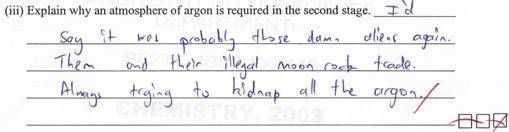 (iii) Explain why an atmosphere of argon is required in the second stage. I'd
Say it was probably those damn aliens again.
Them and their illegal moon rock trade.
Always trying to kidnap all the argon.
CHEMISTRY, 2003